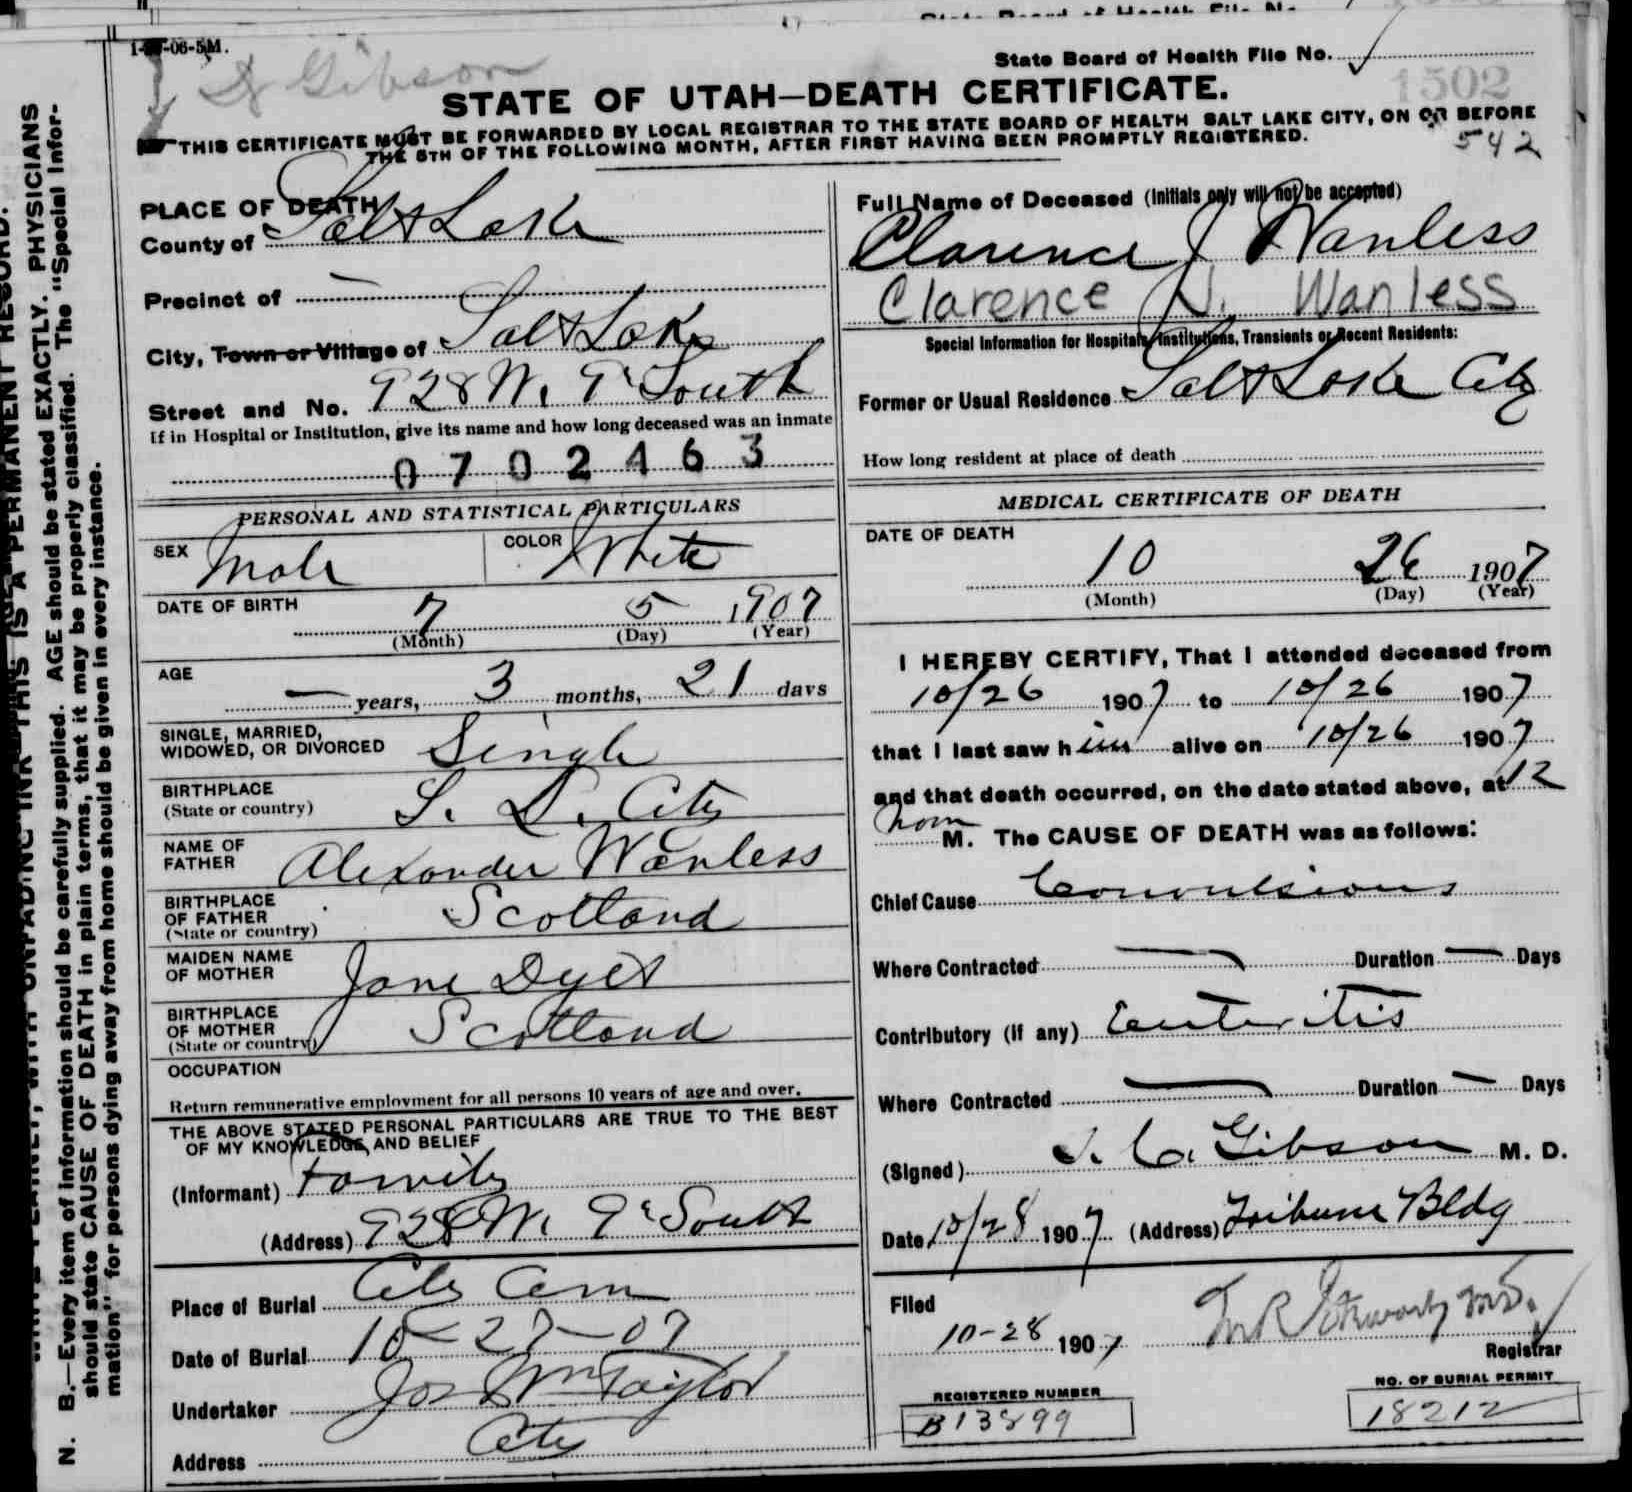 State Board of Health File No.
1-06-5M.
Gibson
State Board of Health File No.
1502
STATE OF UTAH—DEATH CERTIFICATE.
THIS CERTIFICATE MUST BE FORWARDED BY LOCAL REGISTRAR TO THE STATE BOARD OF HEALTH SALT LAKE CITY, ON OR BEFORE
THE 5TH OF THE FOLLOWING MONTH, AFTER FIRST HAVING BEEN PROMPTLY REGISTERED.
542
PLACE OF DEATH
County of Salt Lake
Precinct of —
City, Town or Village of Salt Lake
Street and No. 928 W. 9" South
If in Hospital or Institution, give its name and how long deceased was an inmate
0702463
PERSONAL AND STATISTICAL PARTICULARS
SEX Male COLOR White
DATE OF BIRTH 7 5 1907
(Month) (Day) (Year)
AGE — years, 3 months, 21 days
SINGLE, MARRIED,
WIDOWED, OR DIVORCED Single
BIRTHPLACE
(State or country) S. L. City
NAME OF
FATHER Alexander Wanless
BIRTHPLACE
OF FATHER
(State or country) Scotland
MAIDEN NAME
OF MOTHER Jane Dyet
BIRTHPLACE
OF MOTHER
(State or country) Scotland
OCCUPATION
Return remunerative employment for all persons 10 years of age and over.
THE ABOVE STATED PERSONAL PARTICULARS ARE TRUE TO THE BEST
OF MY KNOWLEDGE AND BELIEF
(Informant) Family
(Address) 928 W. 9" South
Place of Burial City Cem
Date of Burial 10-27-07
Undertaker Jos Wm Taylor
Address City
Full Name of Deceased (Initials only will not be accepted)
Clarence J Wanless
Clarence N. Wanless
Special Information for Hospitals, Institutions, Transients or Recent Residents:
Former or Usual Residence Salt Lake City
How long resident at place of death
MEDICAL CERTIFICATE OF DEATH
DATE OF DEATH
10 26 1907
(Month) (Day) (Year)
I HEREBY CERTIFY, That I attended deceased from
10/26 1907 to 10/26 1907
that I last saw him alive on 10/26 1907
and that death occurred, on the date stated above, at 12
noon M. The CAUSE OF DEATH was as follows:
Chief Cause Convulsions
Where Contracted — Duration — Days
Contributory (if any) Enteritis
Where Contracted — Duration — Days
(Signed) J. C. Gibson M. D.
Date 10/28 1907 (Address) Tribune Bldg
Filed
10-28 1907
Registrar
REGISTERED NUMBER
B13899
NO. OF BURIAL PERMIT
18212
N. B.—Every item of information should be carefully supplied. AGE should be stated EXACTLY. PHYSICIANS
should state CAUSE OF DEATH in plain terms, that it may be properly classified. The "Special Infor-
mation" for persons dying away from home should be given in every instance.
THIS IS A PERMANENT RECORD.